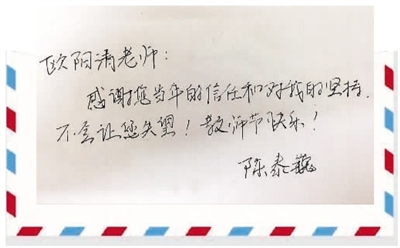 欧阳清老师：
感谢您当年的信任和对我的坚持，
不会让您失望！教师节快乐！
陈泰巍